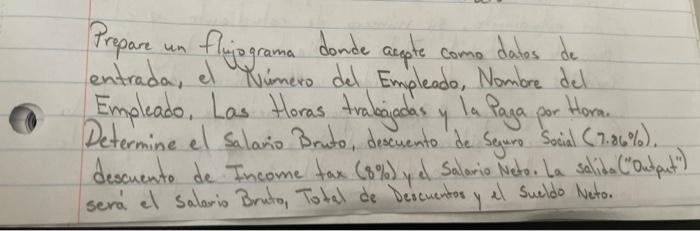 Prepare un flujograma donde acepte como datos de
entrada, el Número del Empleado, Nombre del
Empleado, Las Horas trabajadas y la Paga por Hora.
Determine el Salario Bruto, descuento de Seguro Social (7.86%).
descuento de Income tax (8%) y el Salario Neto. La salida ("Output")
será el Salario Bruto, Total de Descuentos y el Sueldo Neto.